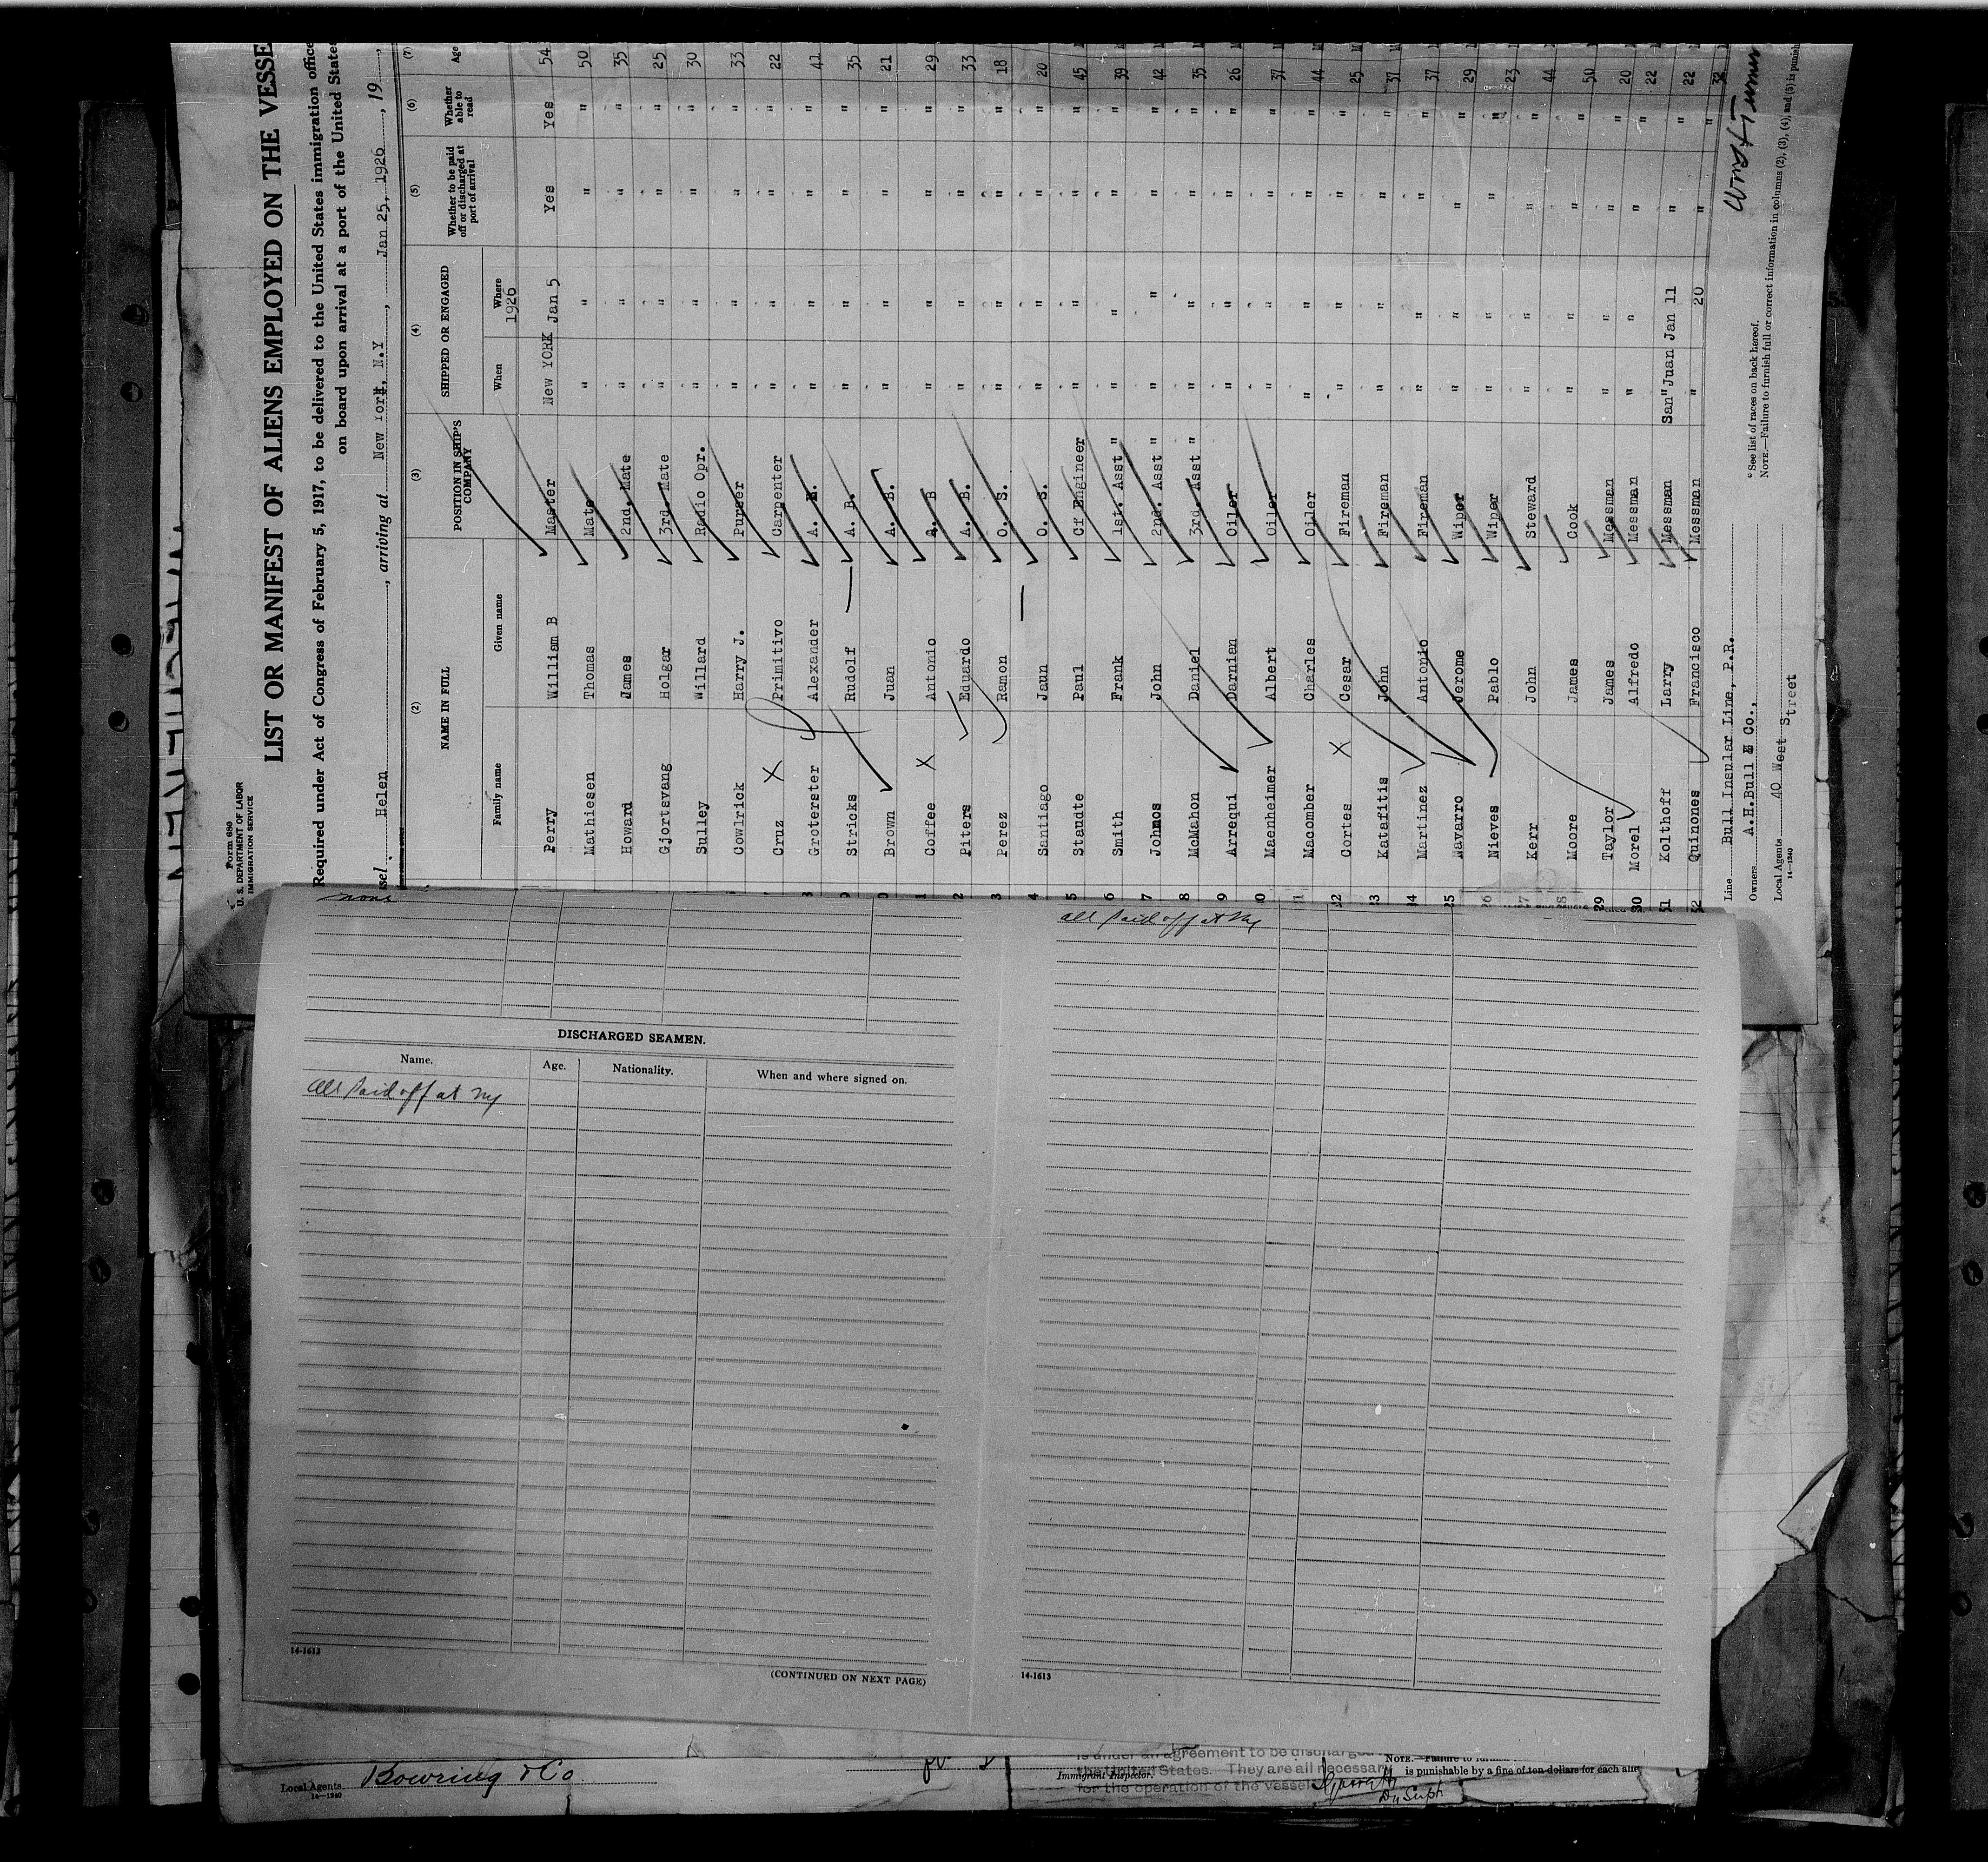 Form 680
U. S. DEPARTMENT OF LABOR
IMMIGRATION SERVICE
LIST OR MANIFEST OF ALIENS EMPLOYED ON THE VESSE
Required under Act of Congress of February 5, 1917, to be delivered to the United States immigration office
on board upon arrival at a port of the United States
sel Helen, arriving at New York, N.Y, Jan 25, 1926, 19
(2) (3) (4) (5) (6) (7)
NAME IN FULL POSITION IN SHIP'S COMPANY SHIPPED OR ENGAGED Whether to be paid off or discharged at port of arrival Whether able to read Age
Family name Given name When Where
1926
Perry William B Master New YORK Jan 5 Yes Yes 54
Mathiesen Thomas Mate " " " " 50
Howard James 2nd. Mate " " " " 35
Gjortsvang Holgar 3rd. Mate " " " " 25
Sulley Willard Radio Opr. " " " " 30
Cowlrick Harry J. Purser " " " " 33
Cruz Primitivo Carpenter " " " " 22
8 Groterster Alexander A. B. " " " " 41
9 Stricks Rudolf A. B. " " " " 35
0 Brown Juan A. B. " " " " 21
1 Coffee Antonio A. B " " " " 29
2 Piters Eduardo A. B. " " " " 33
3 Perez Ramon O. S. " " " " 18
4 Santiago Jaun O. S. " " " " 20
5 Staudte Paul Cf Engineer " " " " 45
6 Smith Frank 1st. Asst " " " " " 39
7 Johnos John 2nd. Asst " " " " " 42
8 McMahon Daniel 3rd. Asst " " " " " 35
9 Arrequi Darnian Oiler " " " " 26
0 Maenheimer Albert Oiler " " " " 37
1 Macomber Charles Oiler " " " " 44
22 Cortes Cesar Fireman " " " " 25
23 Katafitis John Fireman " " " " 37
24 Martinez Antonio Fireman " " " " 37
25 Navarro Jerome Wiper " " " " 29
26 Nieves Pablo Wiper " " " " 23
27 Kerr John Steward " " " " 44
28 Moore James Cook " " " " 50
29 Taylor James Messman " " " " 20
30 Morel Alfredo Messman " " " " 22
31 Kolthoff Larry Messman San"Juan Jan 11 " " 22
32 Quinones Francisco Messman " 20 " " 32
Line Bull Insular Line, P.R.
Owners A.H.Bull & Co.,
Local Agents 40 West Street
14—1240
* See list of races on back hereof.
NOTE.—Failure to furnish full or correct information in columns (2), (3), (4), and (5) is punish
none
DISCHARGED SEAMEN.
Name. Age. Nationality. When and where signed on.
All Paid off at NY
14-1613
(CONTINUED ON NEXT PAGE)
all Paid off at NY
14-1613
Local Agents Bowring & Co
14—1240
is under an agreement to be discharged
the United States. They are all necessary
for the operation of the vessel
Immigrant Inspector.
NOTE.—Failure to
is punishable by a fine of ten dollars for each alie